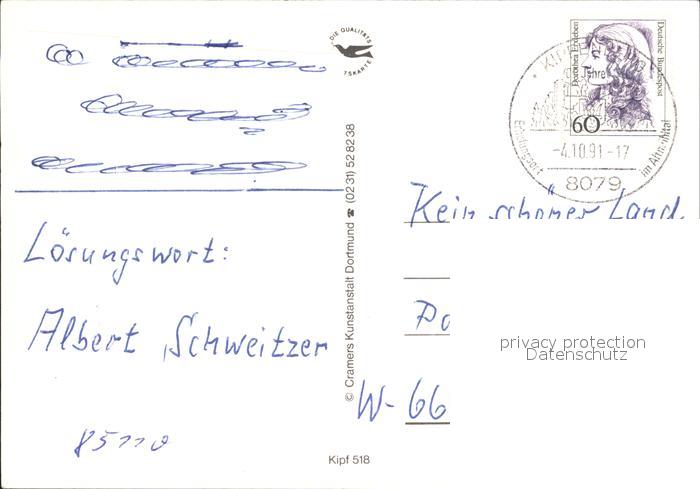 DIE QUALITÄTSKARTE
Dorothea Erxleben
Deutsche Bundespost
60
Jahre
Erholungsort
im Altmühltal
-4.10.91-17
8079
© Cramers Kunstanstalt Dortmund ☎ (02 31) 52 82 38
Lösungswort:
Albert Schweitzer
85110
Kein schöner Land
W-66
privacy protection
Datenschutz
Kipf 518